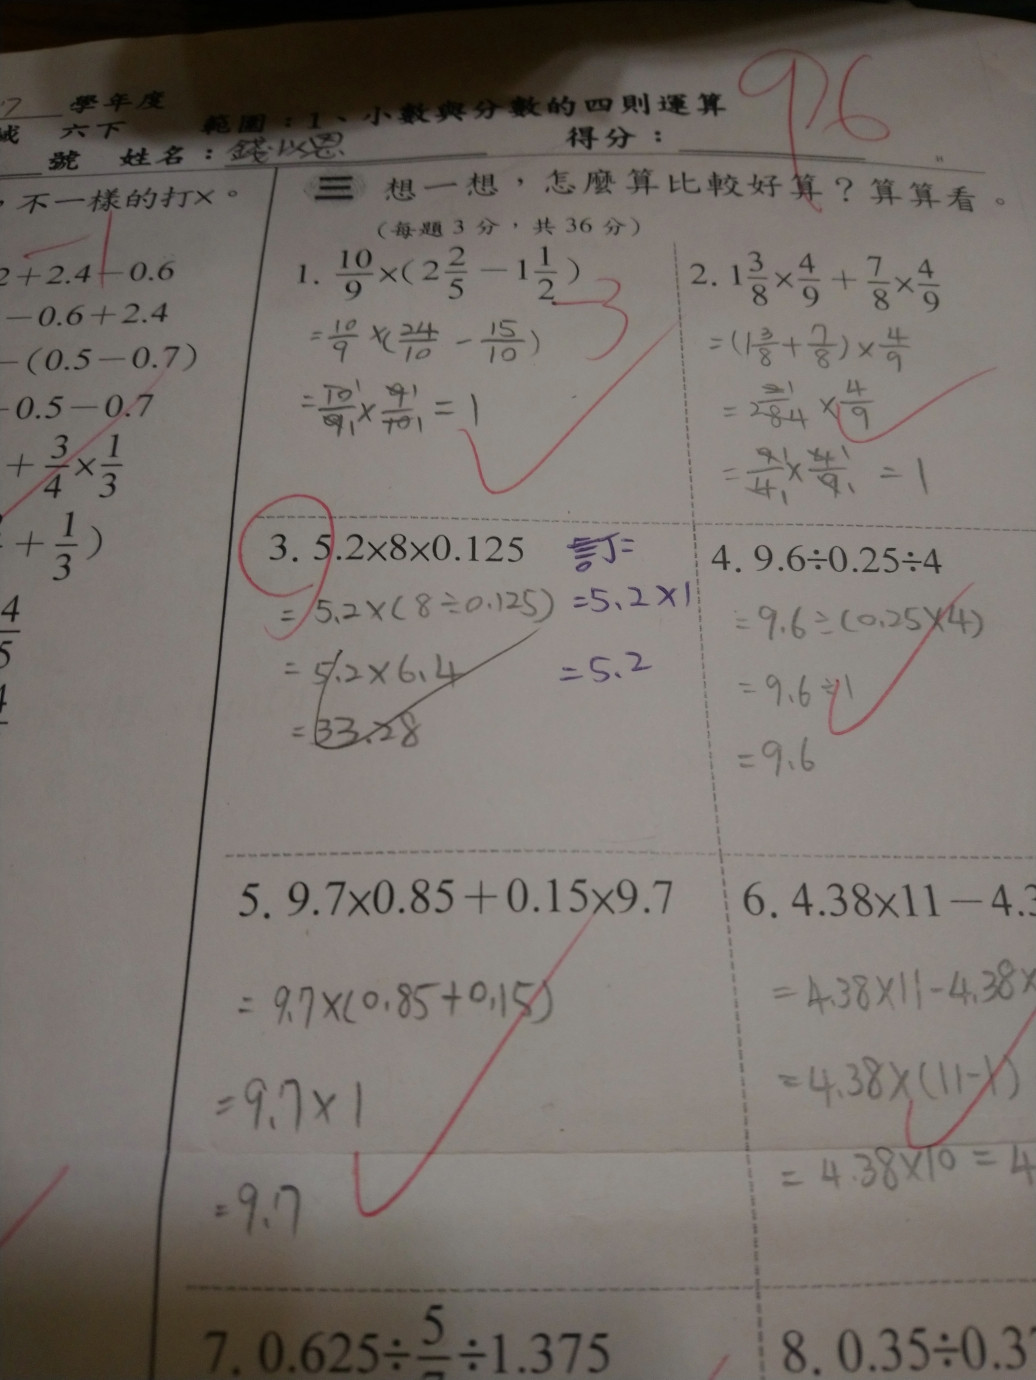 學年度
六下 範圍：1、小數與分數的四則運算
號 姓名：錢以恩 得分： 96
，不一樣的打×。
2+2.4-0.6
-0.6+2.4
-(0.5-0.7)
-0.5-0.7
+ 3/4 × 1/3
+ 1/3 )
4/5
三 想一想，怎麼算比較好算？算算看。
(每題3分，共36分)
-3
1. 10/9 ×(2 2/5 - 1 1/2)
= 10/9 ×(24/10 - 15/10)
= 10/9 × 9/10 = 1
2. 1 3/8 × 4/9 + 7/8 × 4/9
=(1 3/8 + 7/8)× 4/9
= 2 2/8 × 4/9
= 9/4 × 4/9 = 1
3. 5.2×8×0.125
= 5.2×(8÷0.125)
= 5.2×6.4
= 33.28
訂=
=5.2×1
=5.2
4. 9.6÷0.25÷4
= 9.6÷(0.25×4)
= 9.6÷1
= 9.6
5. 9.7×0.85+0.15×9.7
= 9.7×(0.85+0.15)
= 9.7×1
= 9.7
6. 4.38×11-4.3
= 4.38×11-4.38×
= 4.38×(11-1)
= 4.38×10 = 4
7. 0.625÷5/7÷1.375
8. 0.35÷0.3